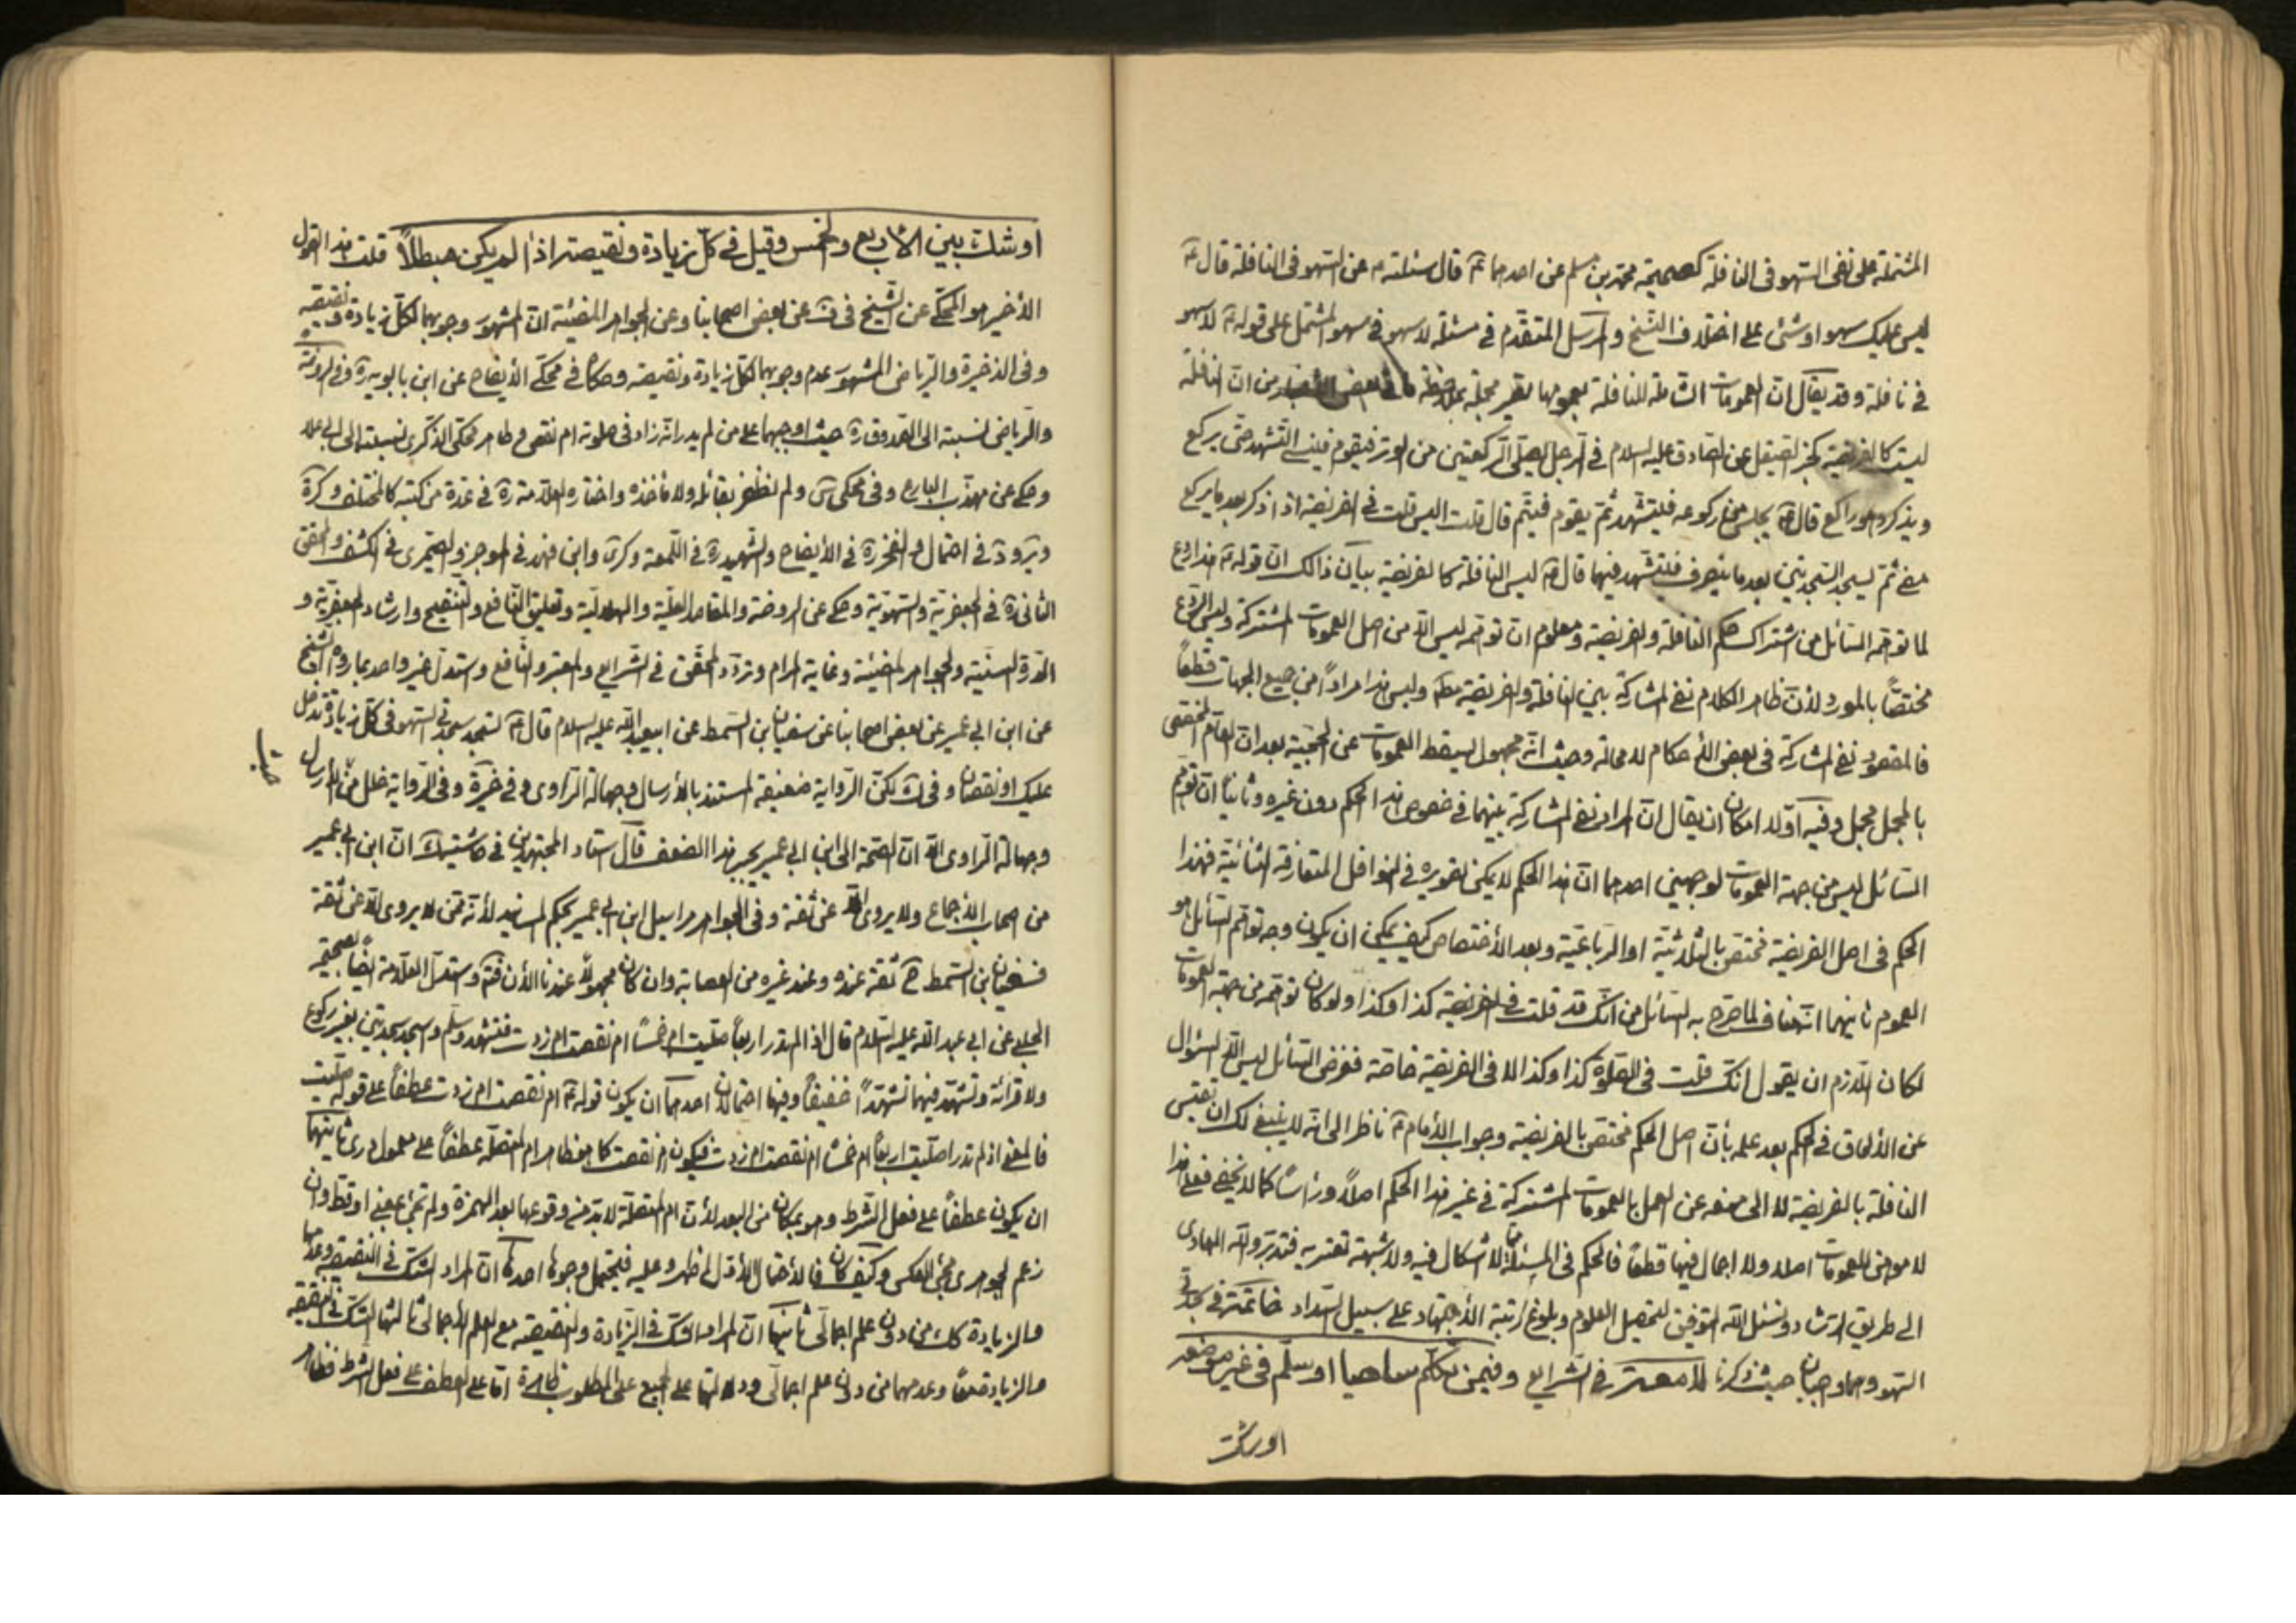 المشتملة على نفى السهو فى النافلة كصحيحة محمد بن مسلم عن احدهما ع قال سئلته عن السهو فى النافلة قال ع
ليس عليك سهو او شئ على اختلاف النسخ والمرسل المتقدم فى مسئلة لا سهو فى سهو المشتمل على قوله ع لا سهو
فى نافلة وقد يقال ان العمومات الشاملة للنافلة بعمومها تصير مجملة بملاحظة ما فى بعض الأخبار من ان النافلة
ليست كالفريضة كخبر الصيقل عن الصادق عليه السلام فى الرجل يصلى الركعتين من الوتر فيقوم فينسى التشهد حتى يركع
ويذكر وهو راكع قال ع يجلس من ركوعه فليتشهد ثم يقوم فيتم قال قلت اليس قلت فى الفريضة اذا ذكر بعد ما يركع
مضى ثم يسجد السجدتين بعد ما ينصرف فليتشهد فيهما قال ع ليس النافلة كالفريضة بيان ذالك ان قوله ع هذا ردع
لما توهمه السائل من اشتراك حكم النافلة والفريضة ومعلوم ان توهمه ليس الا من اصل العمومات المشتركة وليس الردع
مختصا بالمورد لأن ظاهر الكلام نفى المشاركة بين النافلة والفريضة مط وليس هذا مرادا من جميع الجهات قطعا
فالمقصود نفى المشاركة فى بعض الأحكام لا محالة وحيث انه مجهول يسقط العمومات عن الحجية بعد ان العام المخصص
بالمجمل مجمل وفيه اولا امكان ان يقال ان المراد نفى المشاركة بينهما فى خصوص هذا الحكم دون غيره وثانيا ان توهم
السائل ليس من جهة العمومات لوجهين احدهما ان هذا الحكم لا يمكن تصويره فى النوافل المتعارفة الثنائية فهذا
الحكم فى اصل الفريضة مختص بالثلاثية او الرباعية وبعد الأختصاص كيف يمكن ان يكون وجه توهم السائل هو
العموم ثانيهما انه مناف لما صرح به السائل من انك قد قلت فى الفريضة كذا وكذا ولو كان توهمه من جهة العمومات
لكان اللازم ان يقول انك قلت فى الصلوة كذا وكذا لا فى الفريضة خاصة فغرض السائل ليس الا السؤال
عن الألحاق فى الحكم بعد علمه بأن اصل الحكم مختص بالفريضة وجواب الأمام ع ناظر الى انه لا ينبغى لك ان تقيس
النافلة بالفريضة لا الى منعه عن العمل بالعمومات المشتركة فى غير هذا الحكم اصلا ورأسا كما لا يخفى فعلى هذا
لا موهن للعمومات اصلا ولا اجمال فيها قطعا فالحكم فى المسئلة مما لا اشكال فيه ولا شبهة تعتريه فتدبر والله الهادى
الى طريق الرشاد ونسئل الله التوفيق لتحصيل العلوم وبلوغ رتبة الأجتهاد على سبيل السداد خاتمة فى سجدتى
السهو وهما واجبتان حيث ذكرنا فى الشرايع وفيمن تكلم ساهيا او سلم فى غير موضعه
اوشك
اوشك بين الأربع والخمس وقيل فى كل زيادة ونقيصة اذا لم يكن مبطلا قلت هذا القول
الأخير هو المحكى عن الشيخ فى ف عن بعض اصحابنا وعن الجواهر المضيئة ان المشهور وجوبهما لكل زيادة ونقيصة
وفى الذخيرة والرياض المشهور عدم وجوبهما لكل زيادة ونقيصة وحكاه فى محكى الأيضاح عن ابن بابويه ره وفى الروضة
والرياض نسبته الى الصدوق ره حيث اوجبهما على من لم يدر انه زاد فى صلوته ام نقص وظاهر محكى الذكرى نسبته الى
وحكى عن مهذب البارع وفى محكى س ولم نظفر بقائله ولا مأخذه واختاره العلامة ره فى عدة من كتبه كالمختلف وكرة
وير ود فى احتمال والفخر ره فى الأيضاح والشهيد ره فى اللمعة وكرى وابن فهد فى الموجز والصيمرى فى الكشف والمحقق
الثانى ره فى الجعفرية والسهوية وحكى عن الروضة والمقاصد العلية والهلالية وتعليق النافع والتنقيح وارشاد الجعفرية و
الدرة السنية والجواهر المضيئة وغاية المرام وتردد المحقق فى الشرايع والمعتبر والنافع واستدل غير واحد بما رواه الشيخ
عن ابن ابى عمير عن بعض اصحابنا عن سفيان بن السمط عن ابيعبد الله عليه السلام قال ع تسجد سجدتى السهو فى كل زيادة تدخل
عليك او نقصان وفى ك لكن الرواية ضعيفة المستند بالأرسال وجهالة الراوى وفى خيرة وفى الرواية خلل من الأرسال
وجهالة الراوى الا ان الصحة الى ابن ابى عمير يجبر هذا الضعف قال استاد المجتهدين فى حاشية ك ان ابن ابى عمير
من اصحاب الأجماع ولا يروى الا عن ثقة وفى الجواهر مراسيل ابن ابى عمير بحكم المسانيد لأنه ممن لا يروى الا عن ثقة
فسفيان بن السمط ح ثقة عنده وعند غيره من العصابة وان كان مجهولا عندنا الأن فتم واستدل العلامة ايضا بصحيحة
الحلبى عن ابى عبد الله عليه السلام قال اذا لم تدر اربعا صليت ام خمسا ام نقصت ام زدت فتشهد وسلم واسجد سجدتين بغير ركوع
ولا قرائة وتشهد فيهما تشهدا خفيفا وفيها احتمالان احدهما ان يكون قوله ع ام نقصت ام زدت عطفا على قوله صليت
فالمعنى اذا لم تدر اصليت اربعا ام خمسا ام نقصت ام زدت فيكون ام نقصت كما هو ظاهر ام المتصلة عطفا على معمول تدرى ثانيهما
ان يكون عطفا على فعل الشرط وهو بمكان من البعد لأن ام المتصلة لا بد من وقوعها بعد الهمزة ولم تجئ بمعنى او قط وان
زعم الجوهرى مجئ العكس وكيف كان فالأحتمال الأول اظهر وعليه فيحتمل وجوها احدها ان المراد الشك فى النقيصة وعدمها
والزيادة كك من دون علم اجمالى ثانيها ان المراد الشك فى الزيادة والنقيصة مع العلم الأجمالى ثالثها الشك فى النقيصة
والزيادة معا وعدمهما من دون علم اجمالى ودلالتها على الجميع على المطلوب ظاهرة اما على العطف على فعل الشرط فظاهر